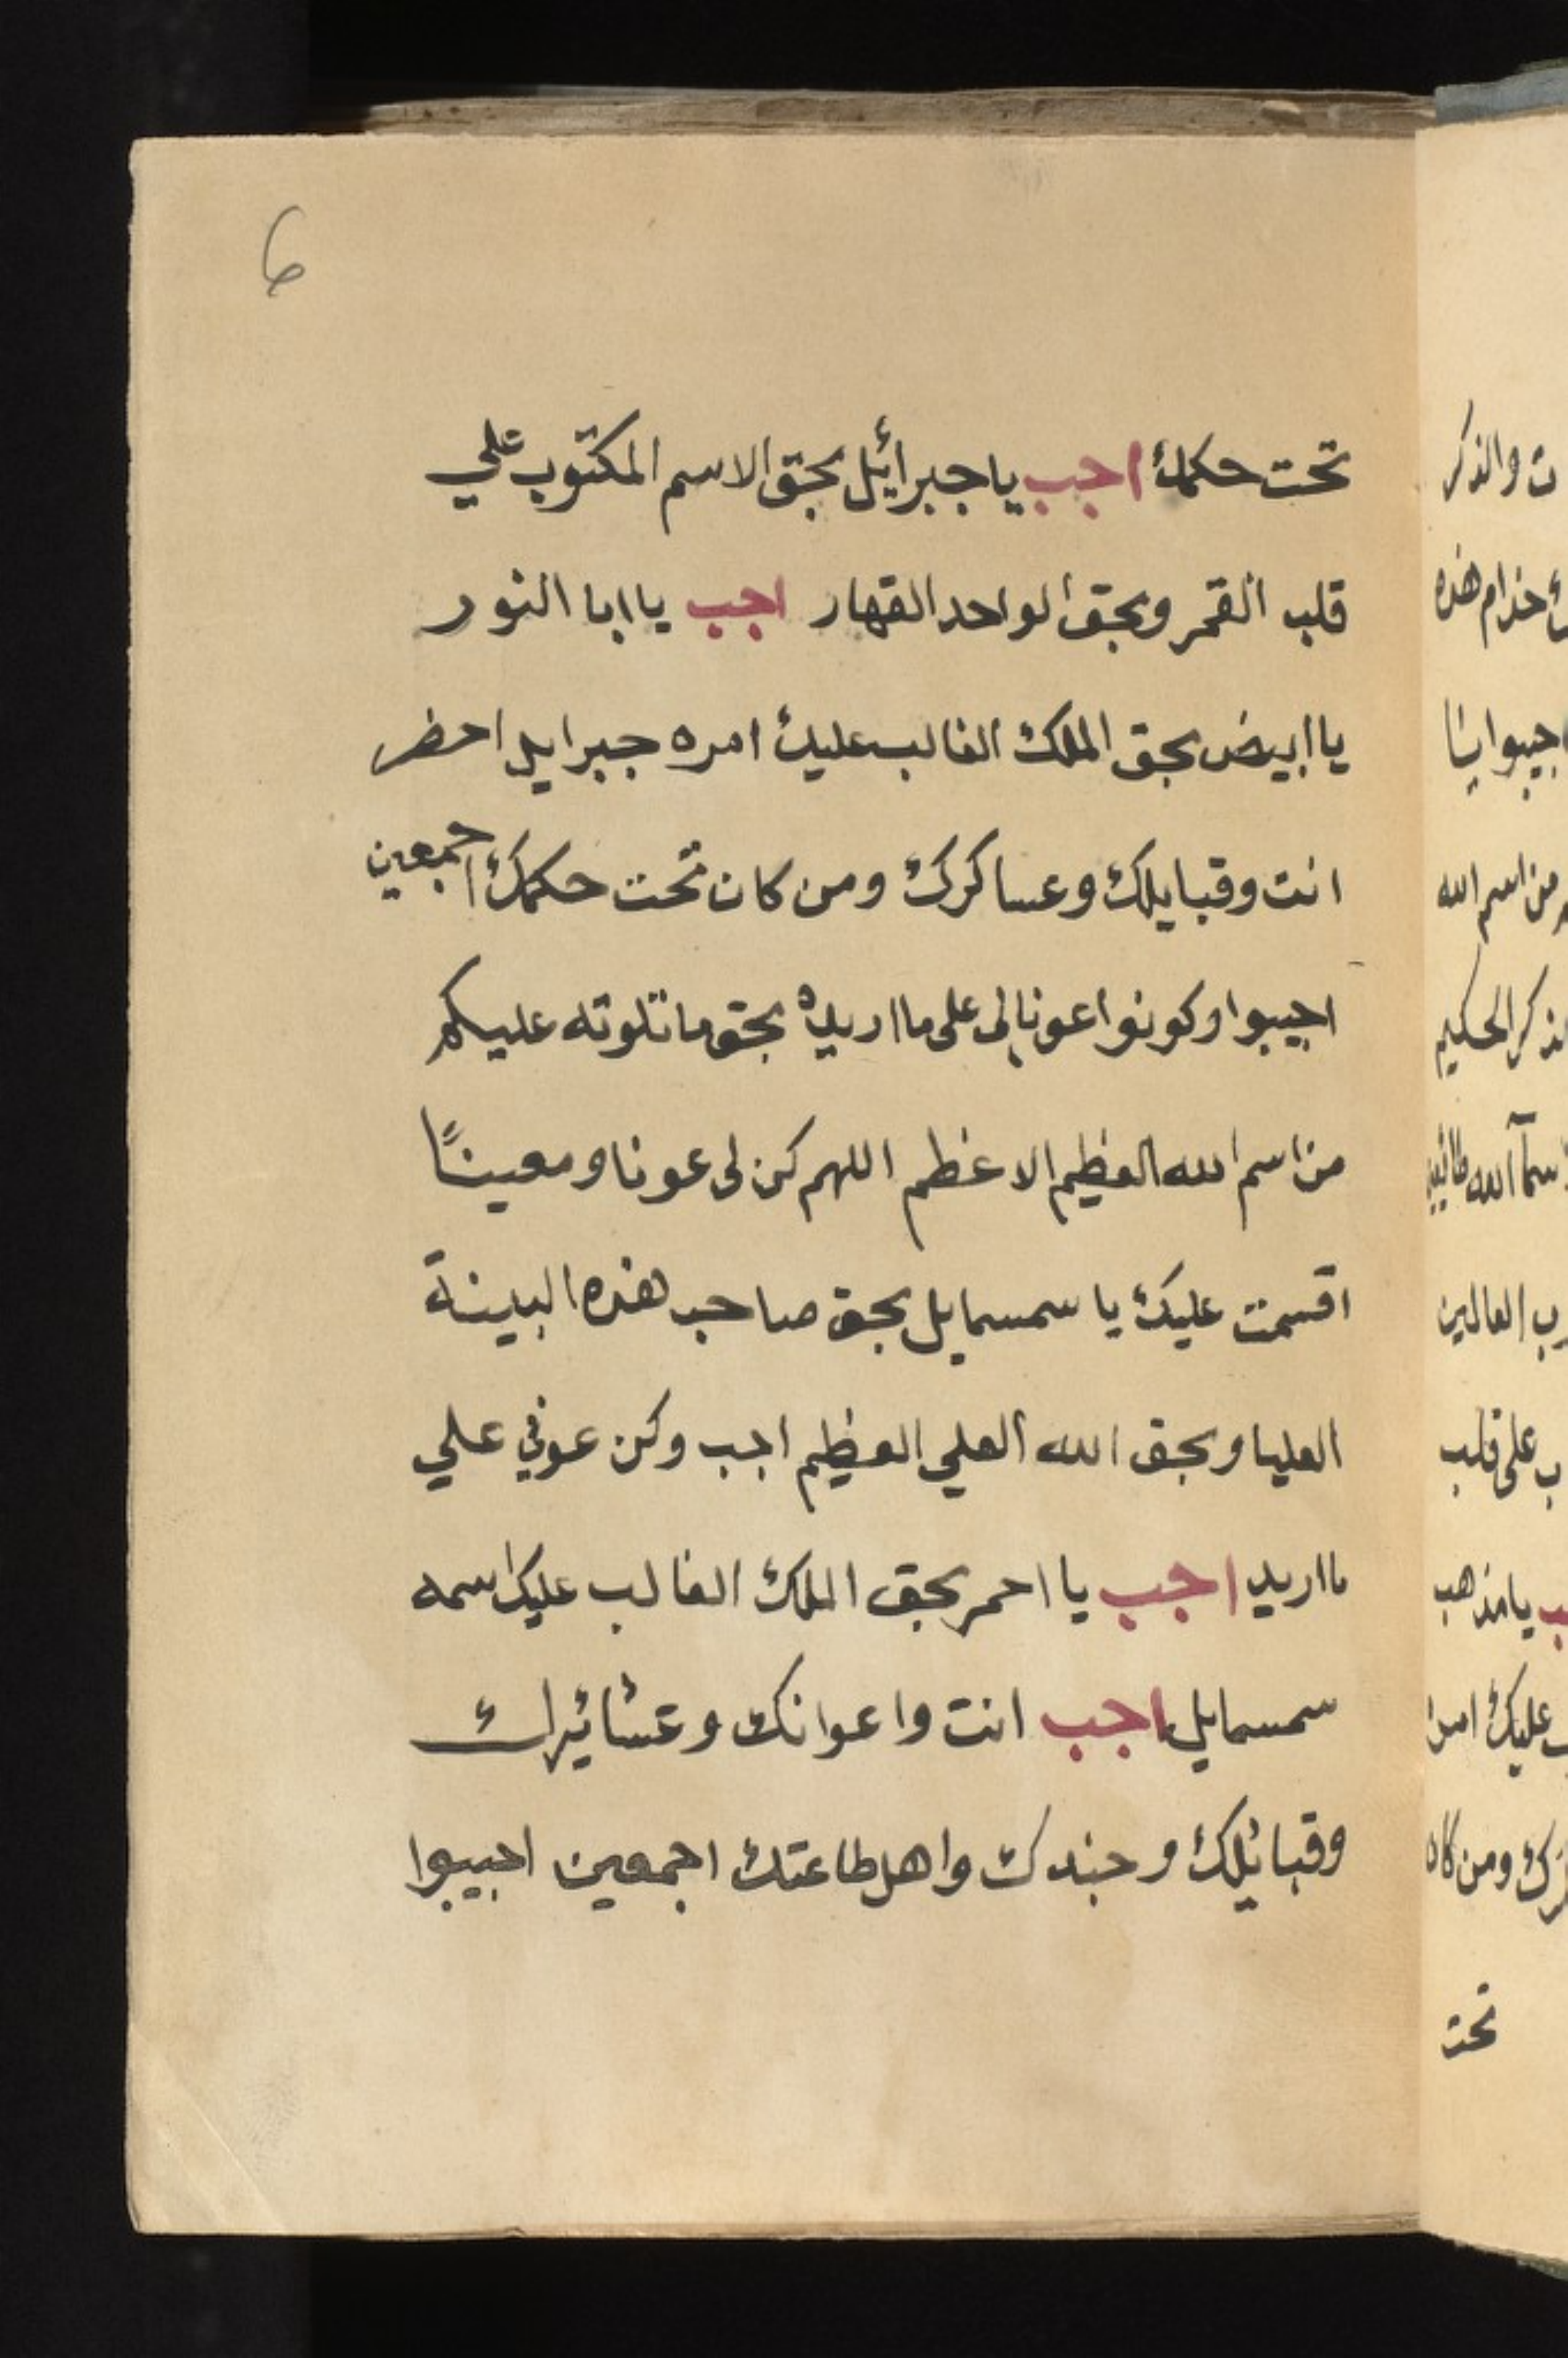 6
تحت حكمك اجب يا جبرائيل بحق الاسم المكتوب علي
قلب القمر وبحق الواحد القهار اجب يا ابا النور
يا ابيض بحق الملك الغالب عليك امره جبرايل احضر
انت وقبايلك وعساكرك ومن كان تحت حكمك اجمعين
اجيبوا وكونوا عونا لي على ما اريده بحق ما تلوته عليكم
من اسم الله العظيم الاعظم اللهم كن لي عونا ومعينًا
اقسمت عليك يا سمسمايل بحق صاحب هذه البينة
العليا وبحق الله العلي العظيم اجب وكن عوني علي
ما اريد اجب يا احمر بحق الملك الغالب عليك اسمه
سمسمايل اجب انت واعوانك وعشائرك
وقبائلك وجندك واهل طاعتك اجمعين اجيبوا
ت والذكر
خدام هذه
اجيبوا
من اسم الله
الذكر الحكيم
رب العالمين
ب على قلب
يا مذهب
عليك امره
ومن كان
تحت